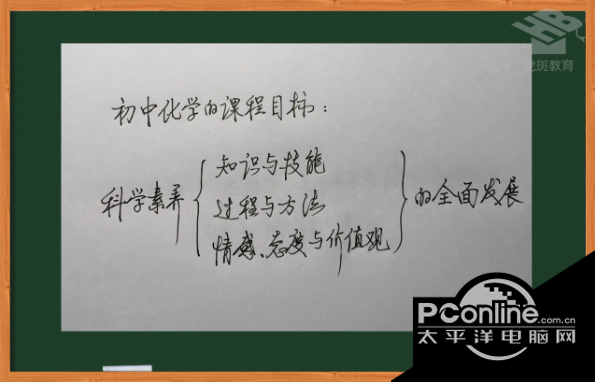 虎斑教育
初中化学的课程目标：
知识与技能
科学素养{过程与方法}的全面发展
情感、态度与价值观
PConline.com.cn
太平洋电脑网